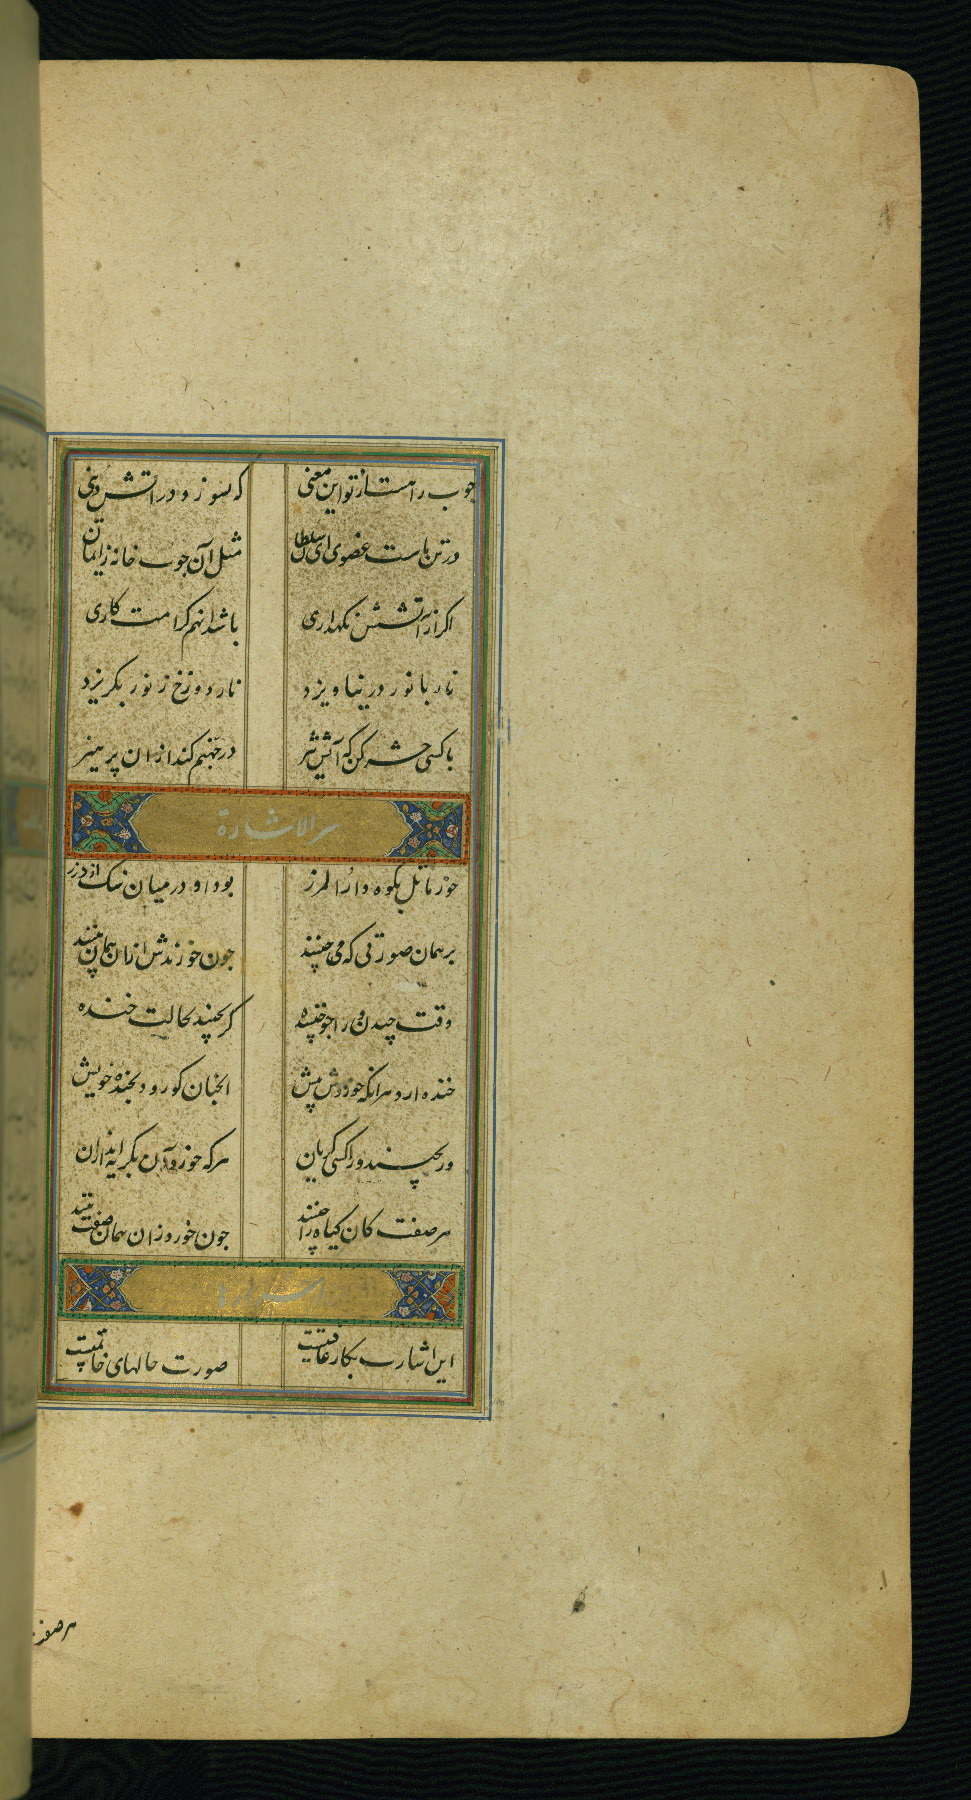 چوب را هست از تو این معنی که بسوزد در آتش دینی
در تن ماست عضوی ای سلطان مثل آن چوب خانه زایمان
اکر از آتشش نکهداری باشد آنهم کرامت کاری
نار با نور در نیاویزد نار دوزخ ز نور بکریزد
با کسی حشر کن که آتش تیز در جهنم کند ازان پرهیز
سر الاشارة
جوز ماثل بکوه دار المرز بود او در میان
بر همان صورتی که می چینند چون خورندش ازان همان بینند
وقت چیدن ورا جوینده کر بچیند بحالت خنده
خنده ارد هر انکه خوردش پیش انچنان کو رود بخنده خویش
ور بچیند ورا کسی کریان هر که خورد آن بکریه اید ازان
هر صفت کان کیاه را چینند چون خورد زان همان صفت بینند
این اشارت بکار عاقبتیست صورت حالهای خاتمتیست
هر صفت